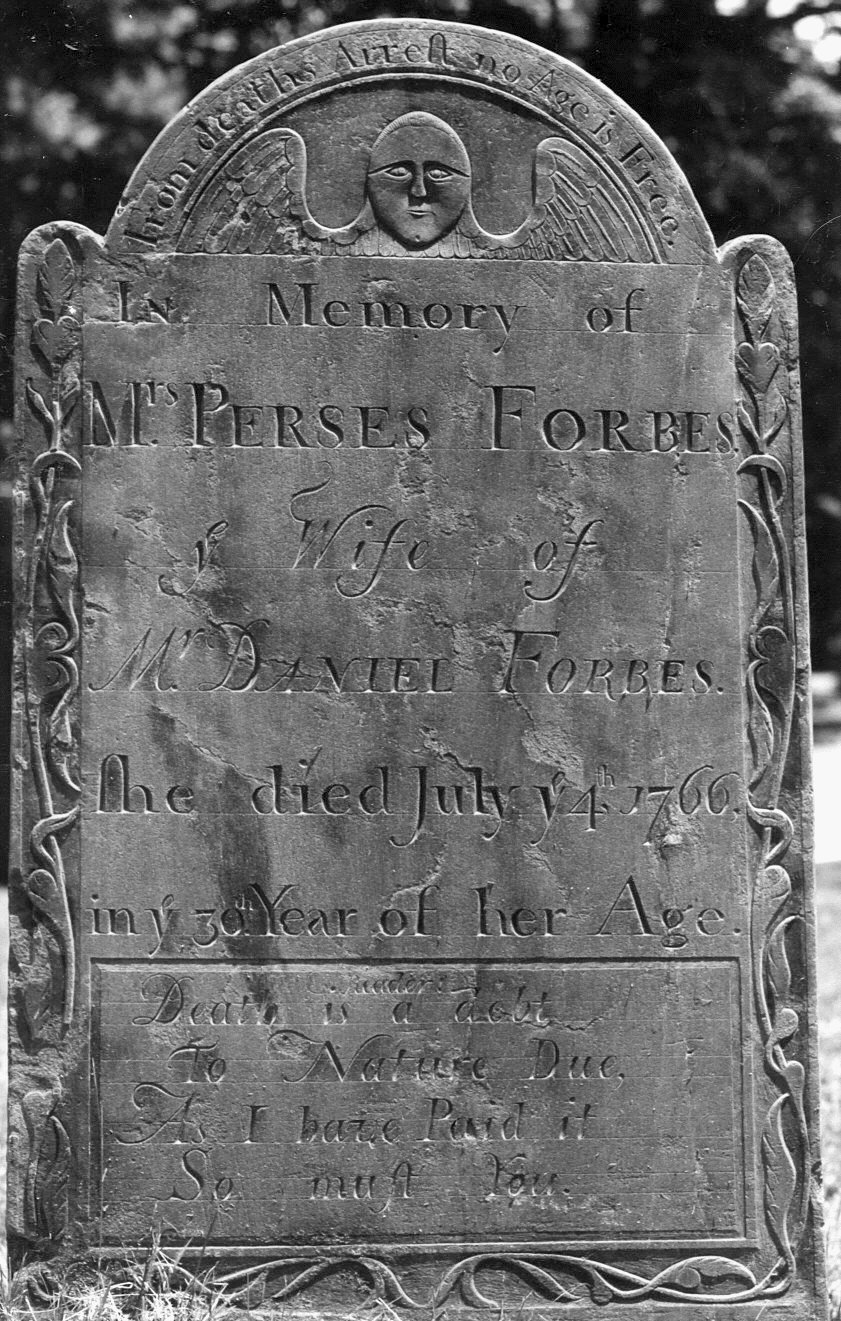 From deaths Arreſt no Age is Free.
In Memory of
Mrs. PERSES FORBES.
ye Wife of
Mr. DANIEL FORBES.
ſhe died July ye 4th 1766.
in ye 30th Year of her Age.
Reader
Death is a debt
To Nature Due,
As I have Paid it
So muſt You.